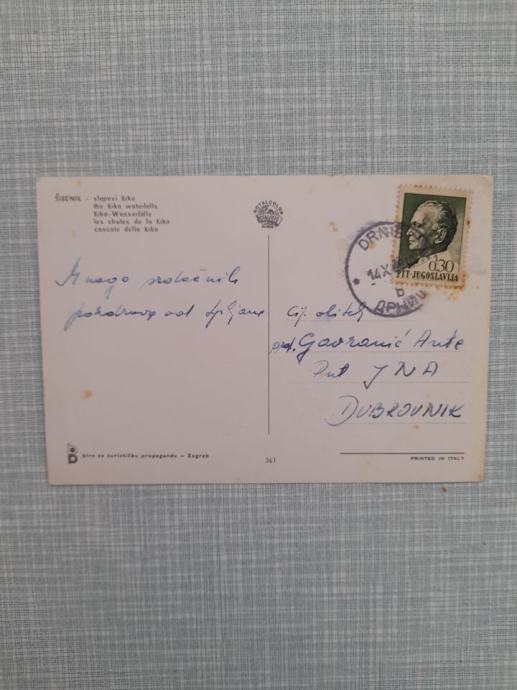 ŠIBENIK - slapovi Krke
the Krka waterfalls
Krka-Wasserfälle
les chutes de la Krka
cascate della Krka
DRNIŠ
14 X
b
ДРНИШ
0.30
PTT-JUGOSLAVIJA
Mnogo srdačnih
pozdrava od Ljiljane
Cij. obitelj
prof. Gavranić Ante
Put JNA
DUBROVNIK
Biro za turističku propagandu — Zagreb
361
PRINTED IN ITALY